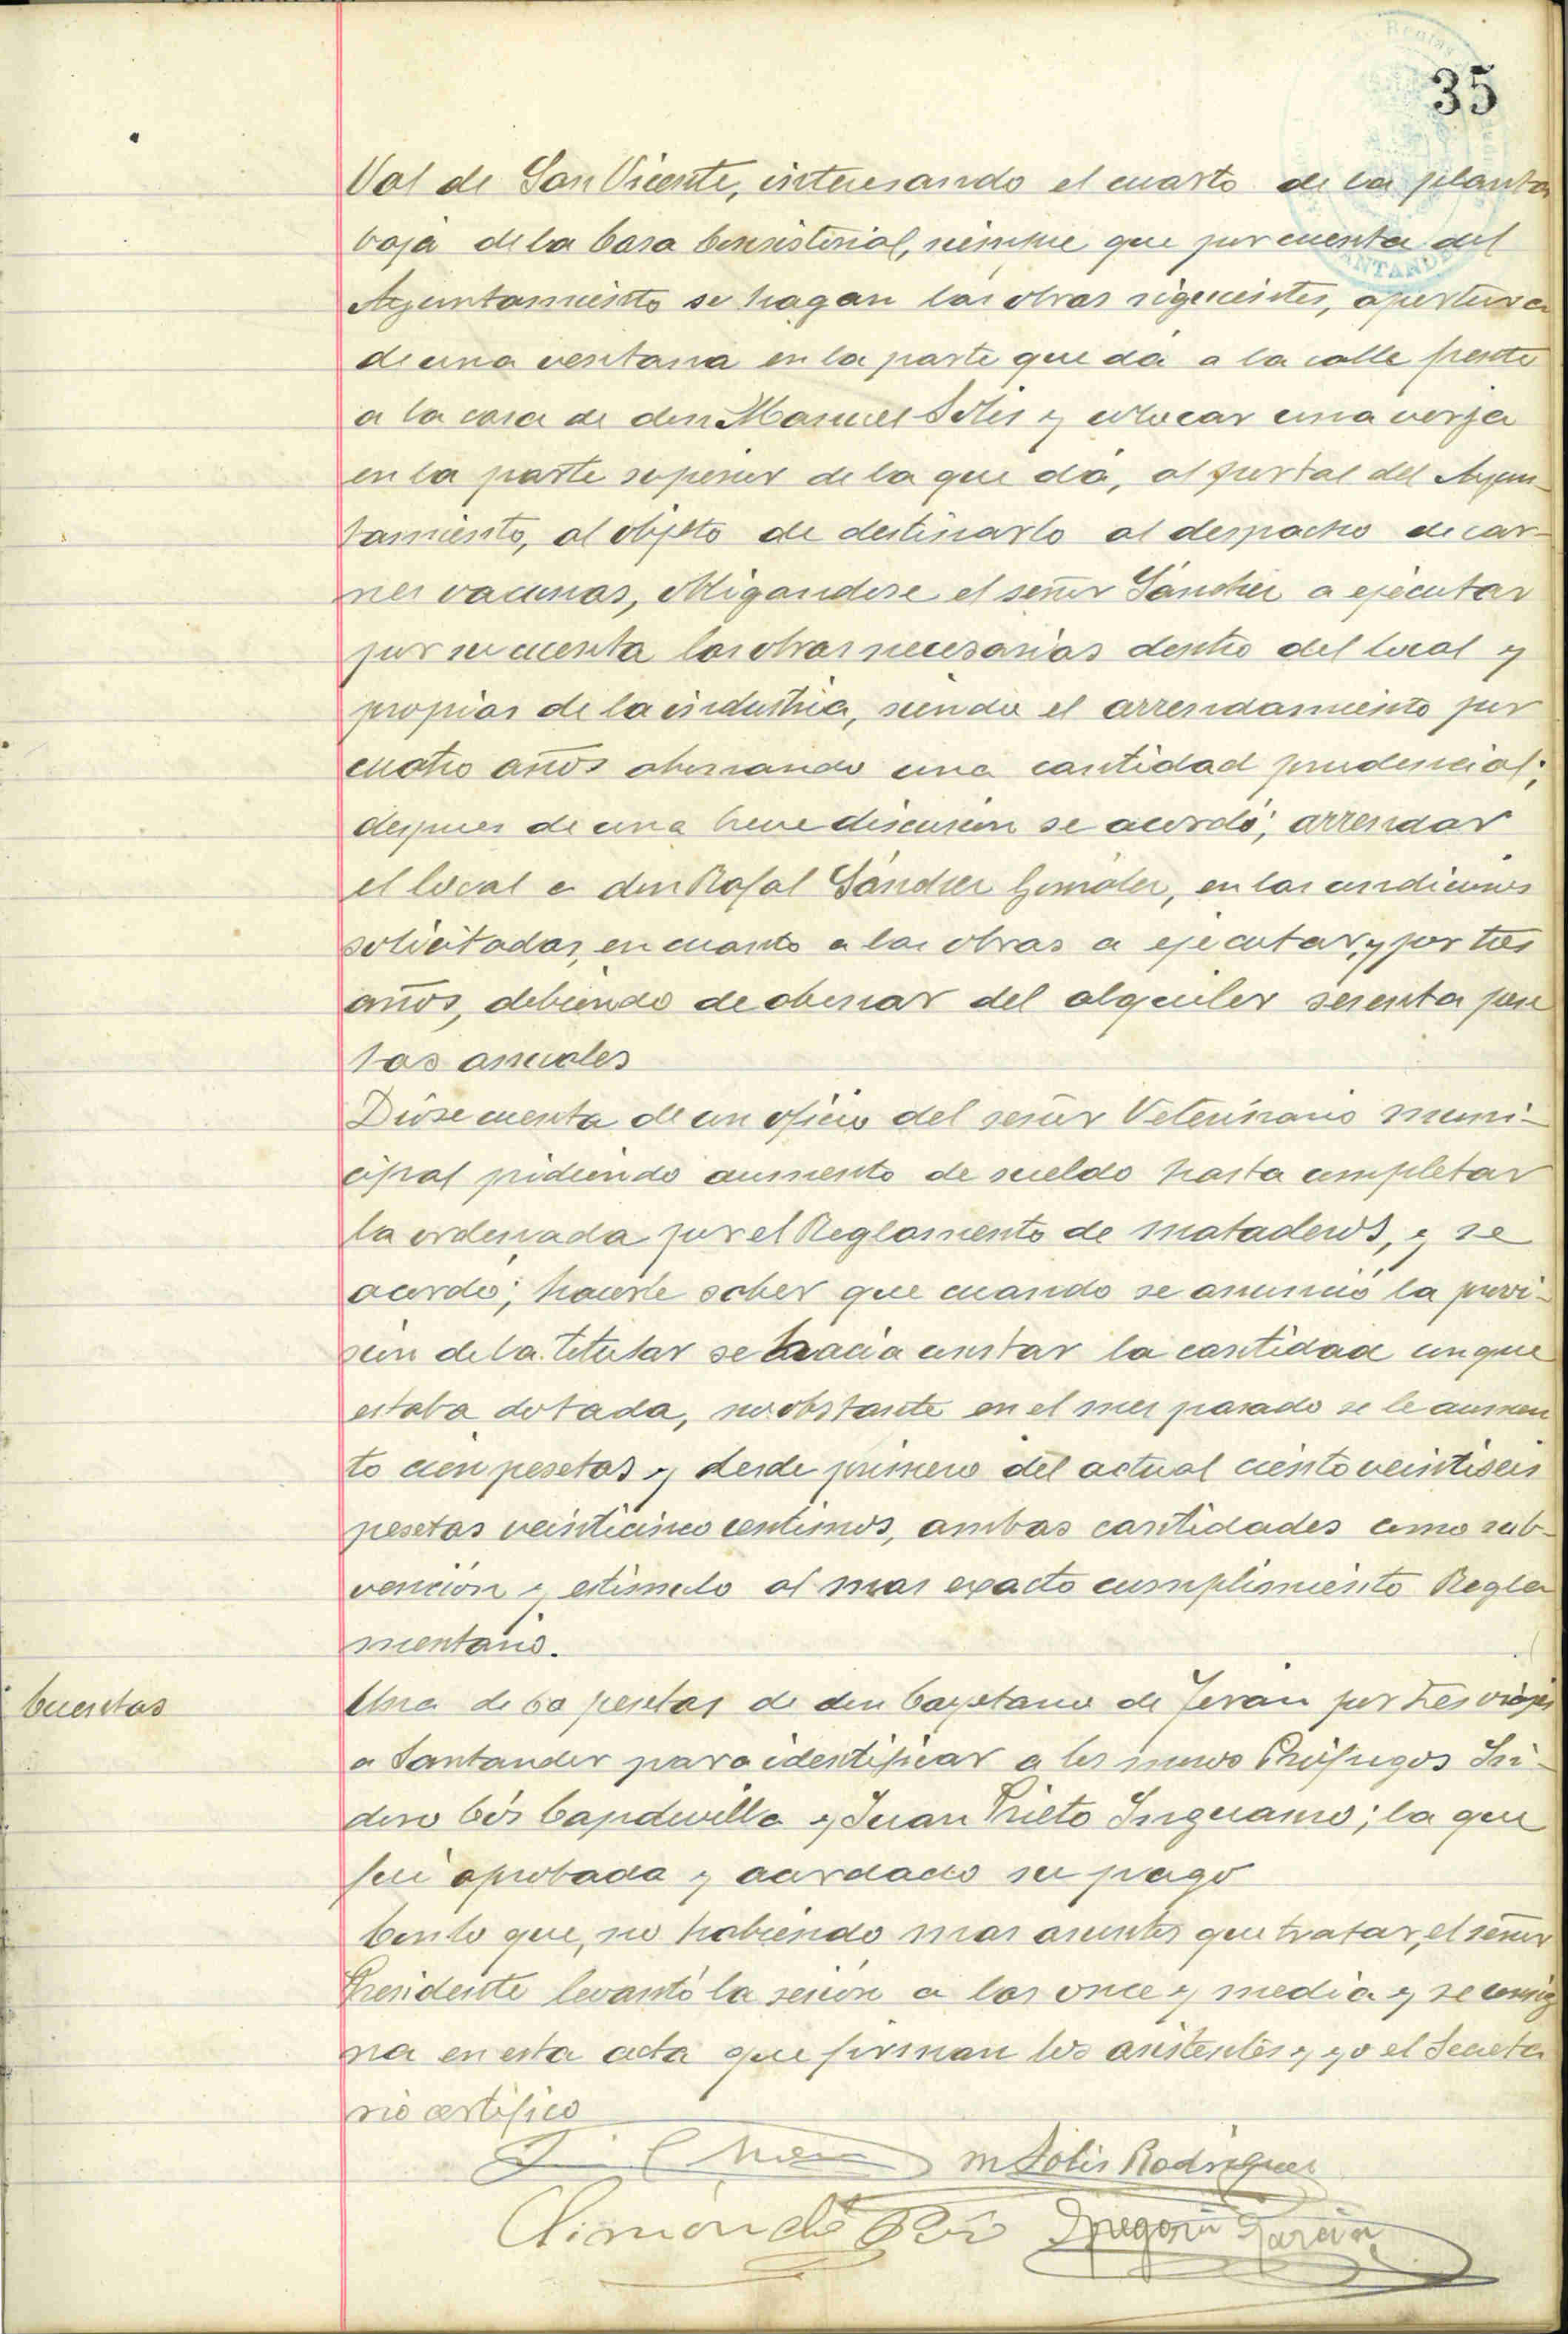 35
Val de San Vicente, interesando el cuarto de la planta
baja de la Casa Consistorial, siempre que por cuenta del
Ayuntamiento se hagan las obras siguientes, apertura
de una ventana en la parte que dá a la calle frente
a la casa de don Manuel Solis y colocar una verja
en la parte superior de la que dá, al portal del Ayun-
tamiento, al objeto de destinarlo al despacho de car-
nes vacunas, obligandose el señor Sánchez a ejecutar
por su cuenta las obras necesarias dentro del local y
propias de la industria, siendo el arrendamiento por
cuatro años abonando una cantidad prudencial;
despues de una breve discusión se acordó; arrendar
el local a don Rafal Sánchez González, en las condiciones
solicitadas, en cuanto a las obras a ejecutar, y por tres
años, debiendo de abonar del alquiler sesenta pese
tas anuales
Dióse cuenta de un oficio del señor Veterinario muni-
cipal pidiendo aumento de sueldo hasta completar
la ordenada por el Reglamento de mataderos, y se
acordó; hacerle saber que cuando se anunció la provi-
sión de la titular se hacia constar la cantidad con que
estaba dotada, no obstante en el mes pasado se le aumen
to cien pesetas y desde primero del actual ciento veintiseis
pesetas veinticinco centimos, ambas cantidades como sub-
vención y estimulo al mas exacto cumplimiento Regla
mentario.
Cuentas
Una de 60 pesetas de don Cayetano de Terán por tres viajes
a Santander para identificar a los mozos Prófugos Isi-
doro Cós Capdevilla y Juan Prieto Inguanzo; la que
fué aprobada y acordado su pago
Con lo que, no habiendo mas asuntos que tratar, el señor
Presidente levantó la sesión a las once y media y se consig
na en esta acta que firman los asistentes y yo el Secreta
rio certifico
M Solis Rodriguez
Simón de
Gregorio Garcia
SANTANDER